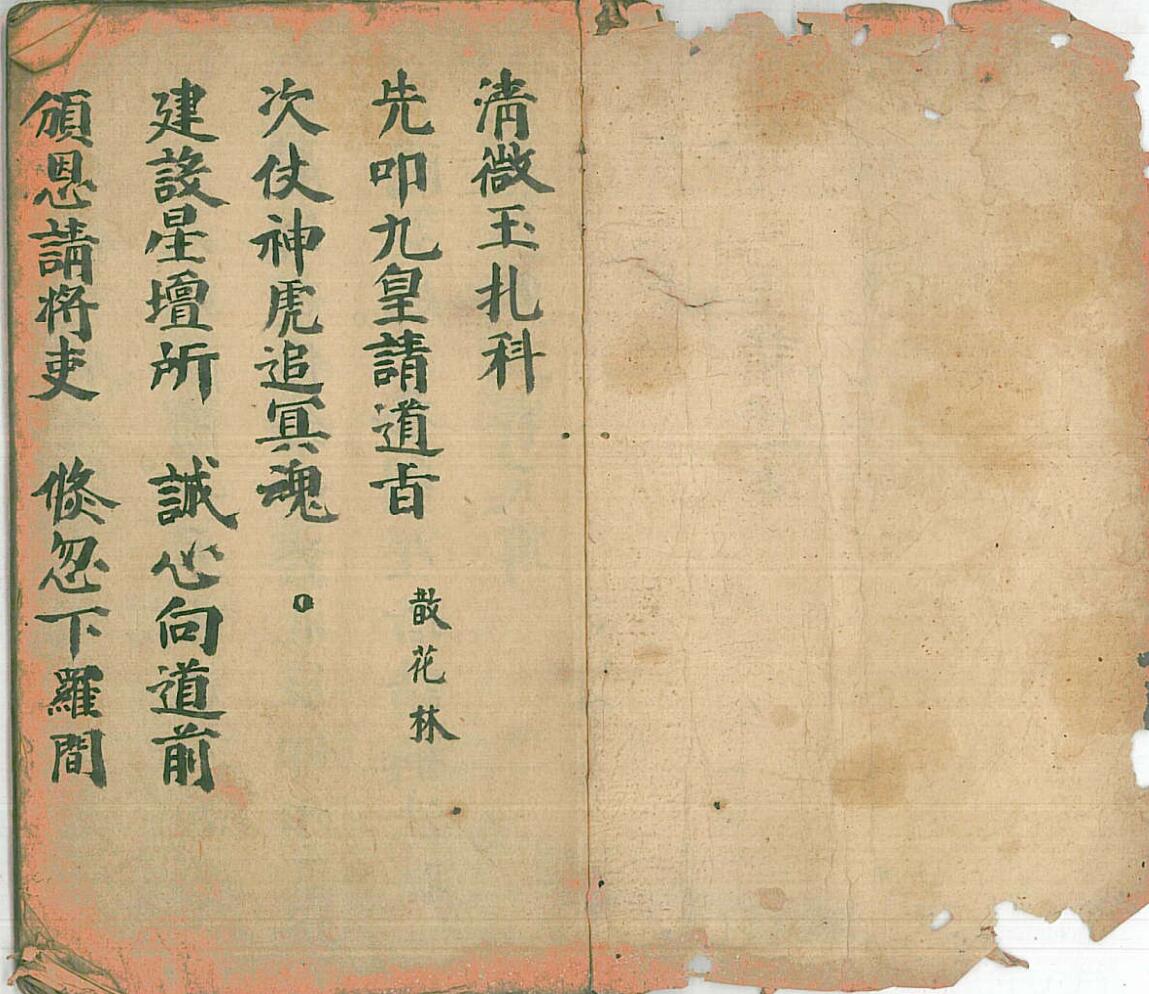 清微玉札科
先叩九皇請道旨
散花林
次仗神虎追冥魂。
建設星壇所 誠心向道前
頒恩請將吏 倐忽下羅間